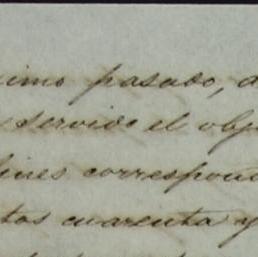 imo pasado, d
servido el obj
fines correspond
tos cuarenta y